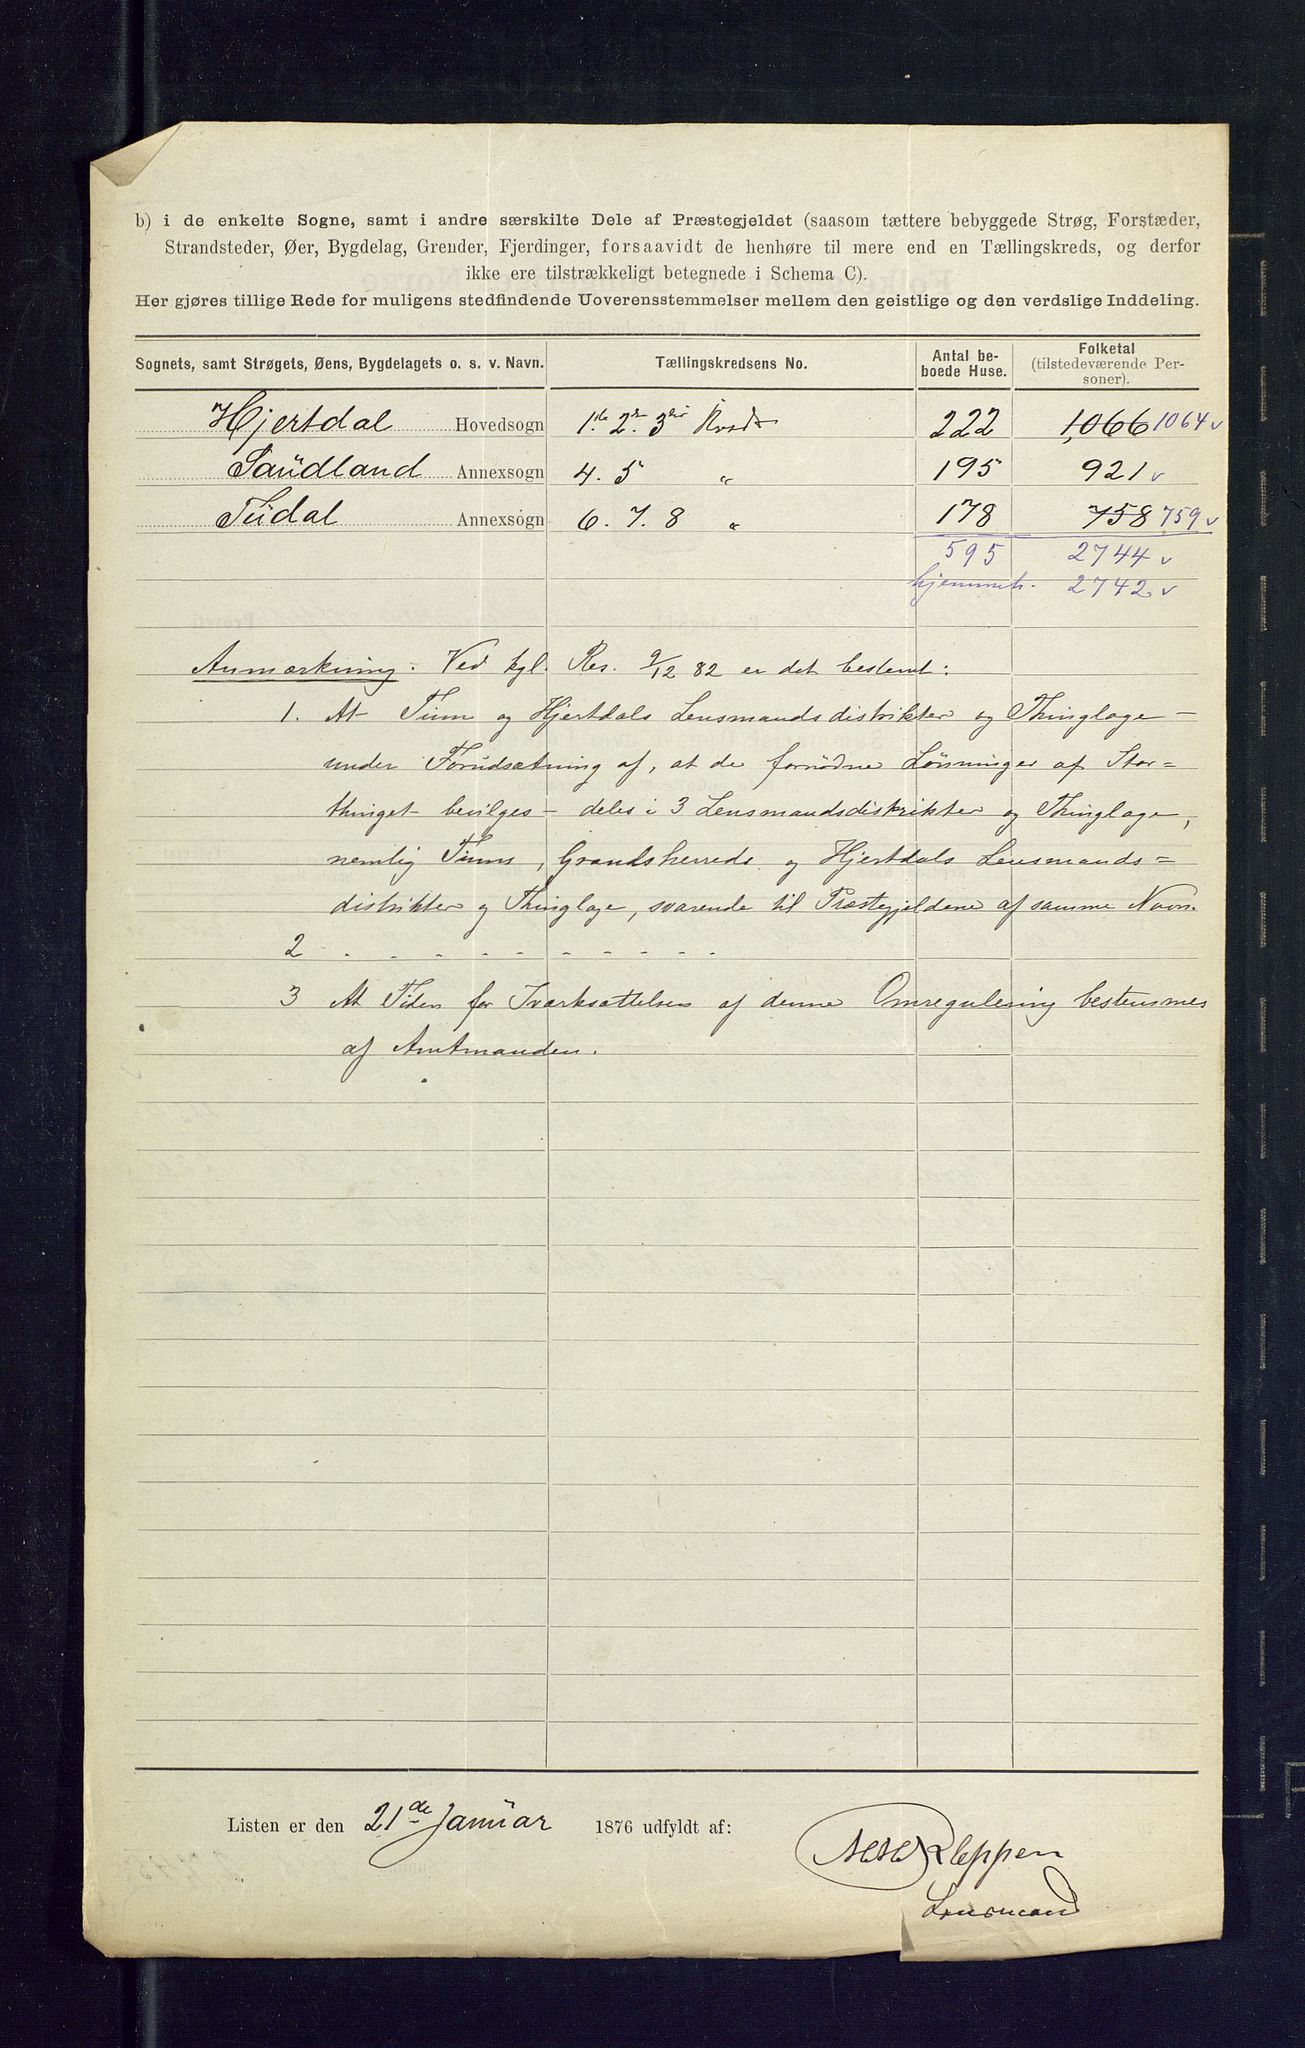 b) i de enkelte Sogne, samt i andre særskilte Dele af Præstegjeldet (saasom tættere bebyggede Strøg, Forstæder,
Strandsteder, Øer, Bygdelag, Grender, Fjerdinger, forsaavidt de henhøre til mere end en Tællingskreds, og derfor
ikke ere tilstrækkeligt betegnede i Schema C).
Her gjøres tillige Rede for muligens stedfindende Uoverensstemmelser mellem den geistlige og den verdslige Inddeling.
Sognets, samt Strøgets, Øens, Bygdelagets o. s. v. Navn. Tællingskredsens No. Antal beboede Huse. Folketal (tilstedeværende Personer).
Hjertdal Hovedsogn 1.de 2.den 3die Kreds 222 1,066 1064 v
Saudland Annexsogn 4. 5 " 195 921 v
Tudal Annexsogn 6. 7. 8 " 178 758 759 v
595 2744 v
hjemmeh. 2742 v
Anmærkning. Ved kgl. Res. 9/12 82 er det bestemt:
1. At Tinn og Hjertdals Lensmandsdistrikter og Thinglage –
under Forudsætning af, at de fornødne Lønninger af Stor=
thinget bevilges – deles i 3 Lensmandsdistrikter og Thinglage,
nemlig Tinns, Grandsherreds og Hjertdals Lensmands=
distrikter og Thinglage, svarende til Præstegjeldene af samme Navn.
2 . . . - - - - - - - -
3 At Tiden for Iværksættelsen af denne Omregulering bestemmes
af Amtmanden.
Listen er den 21de Januar 1876 udfyldt af:
Kleppen
Lensmand